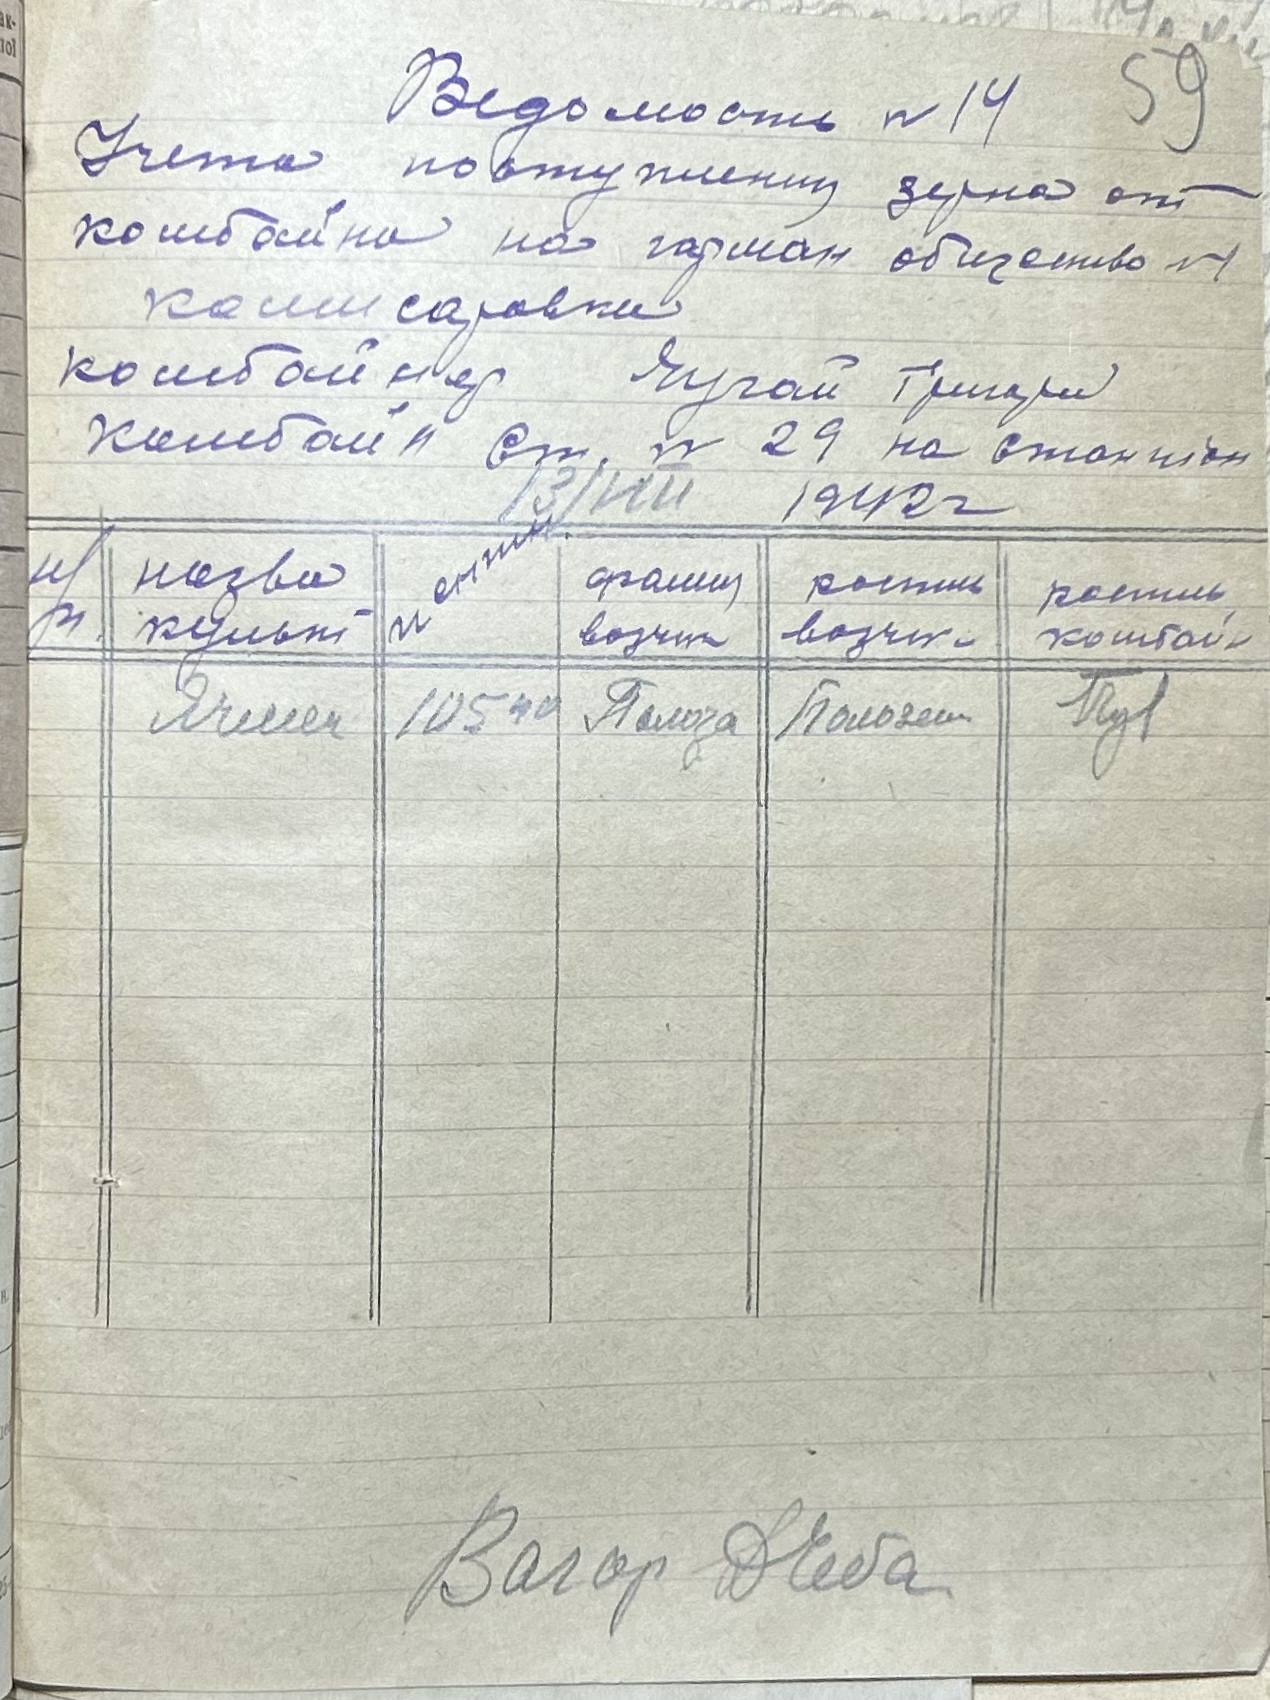 59
Ведомость № 14
Учета поступлению зерна от
комбайна на гарман общество №1
комисаровки
комбайнер Пугай Григори
Комбайн Ст. № 29 на
13/VIII 1942 г
н/п. назва культ № фамил возчик роспись возчик роспись комбайн
Ячмен 105 40 Полоза
Вагор